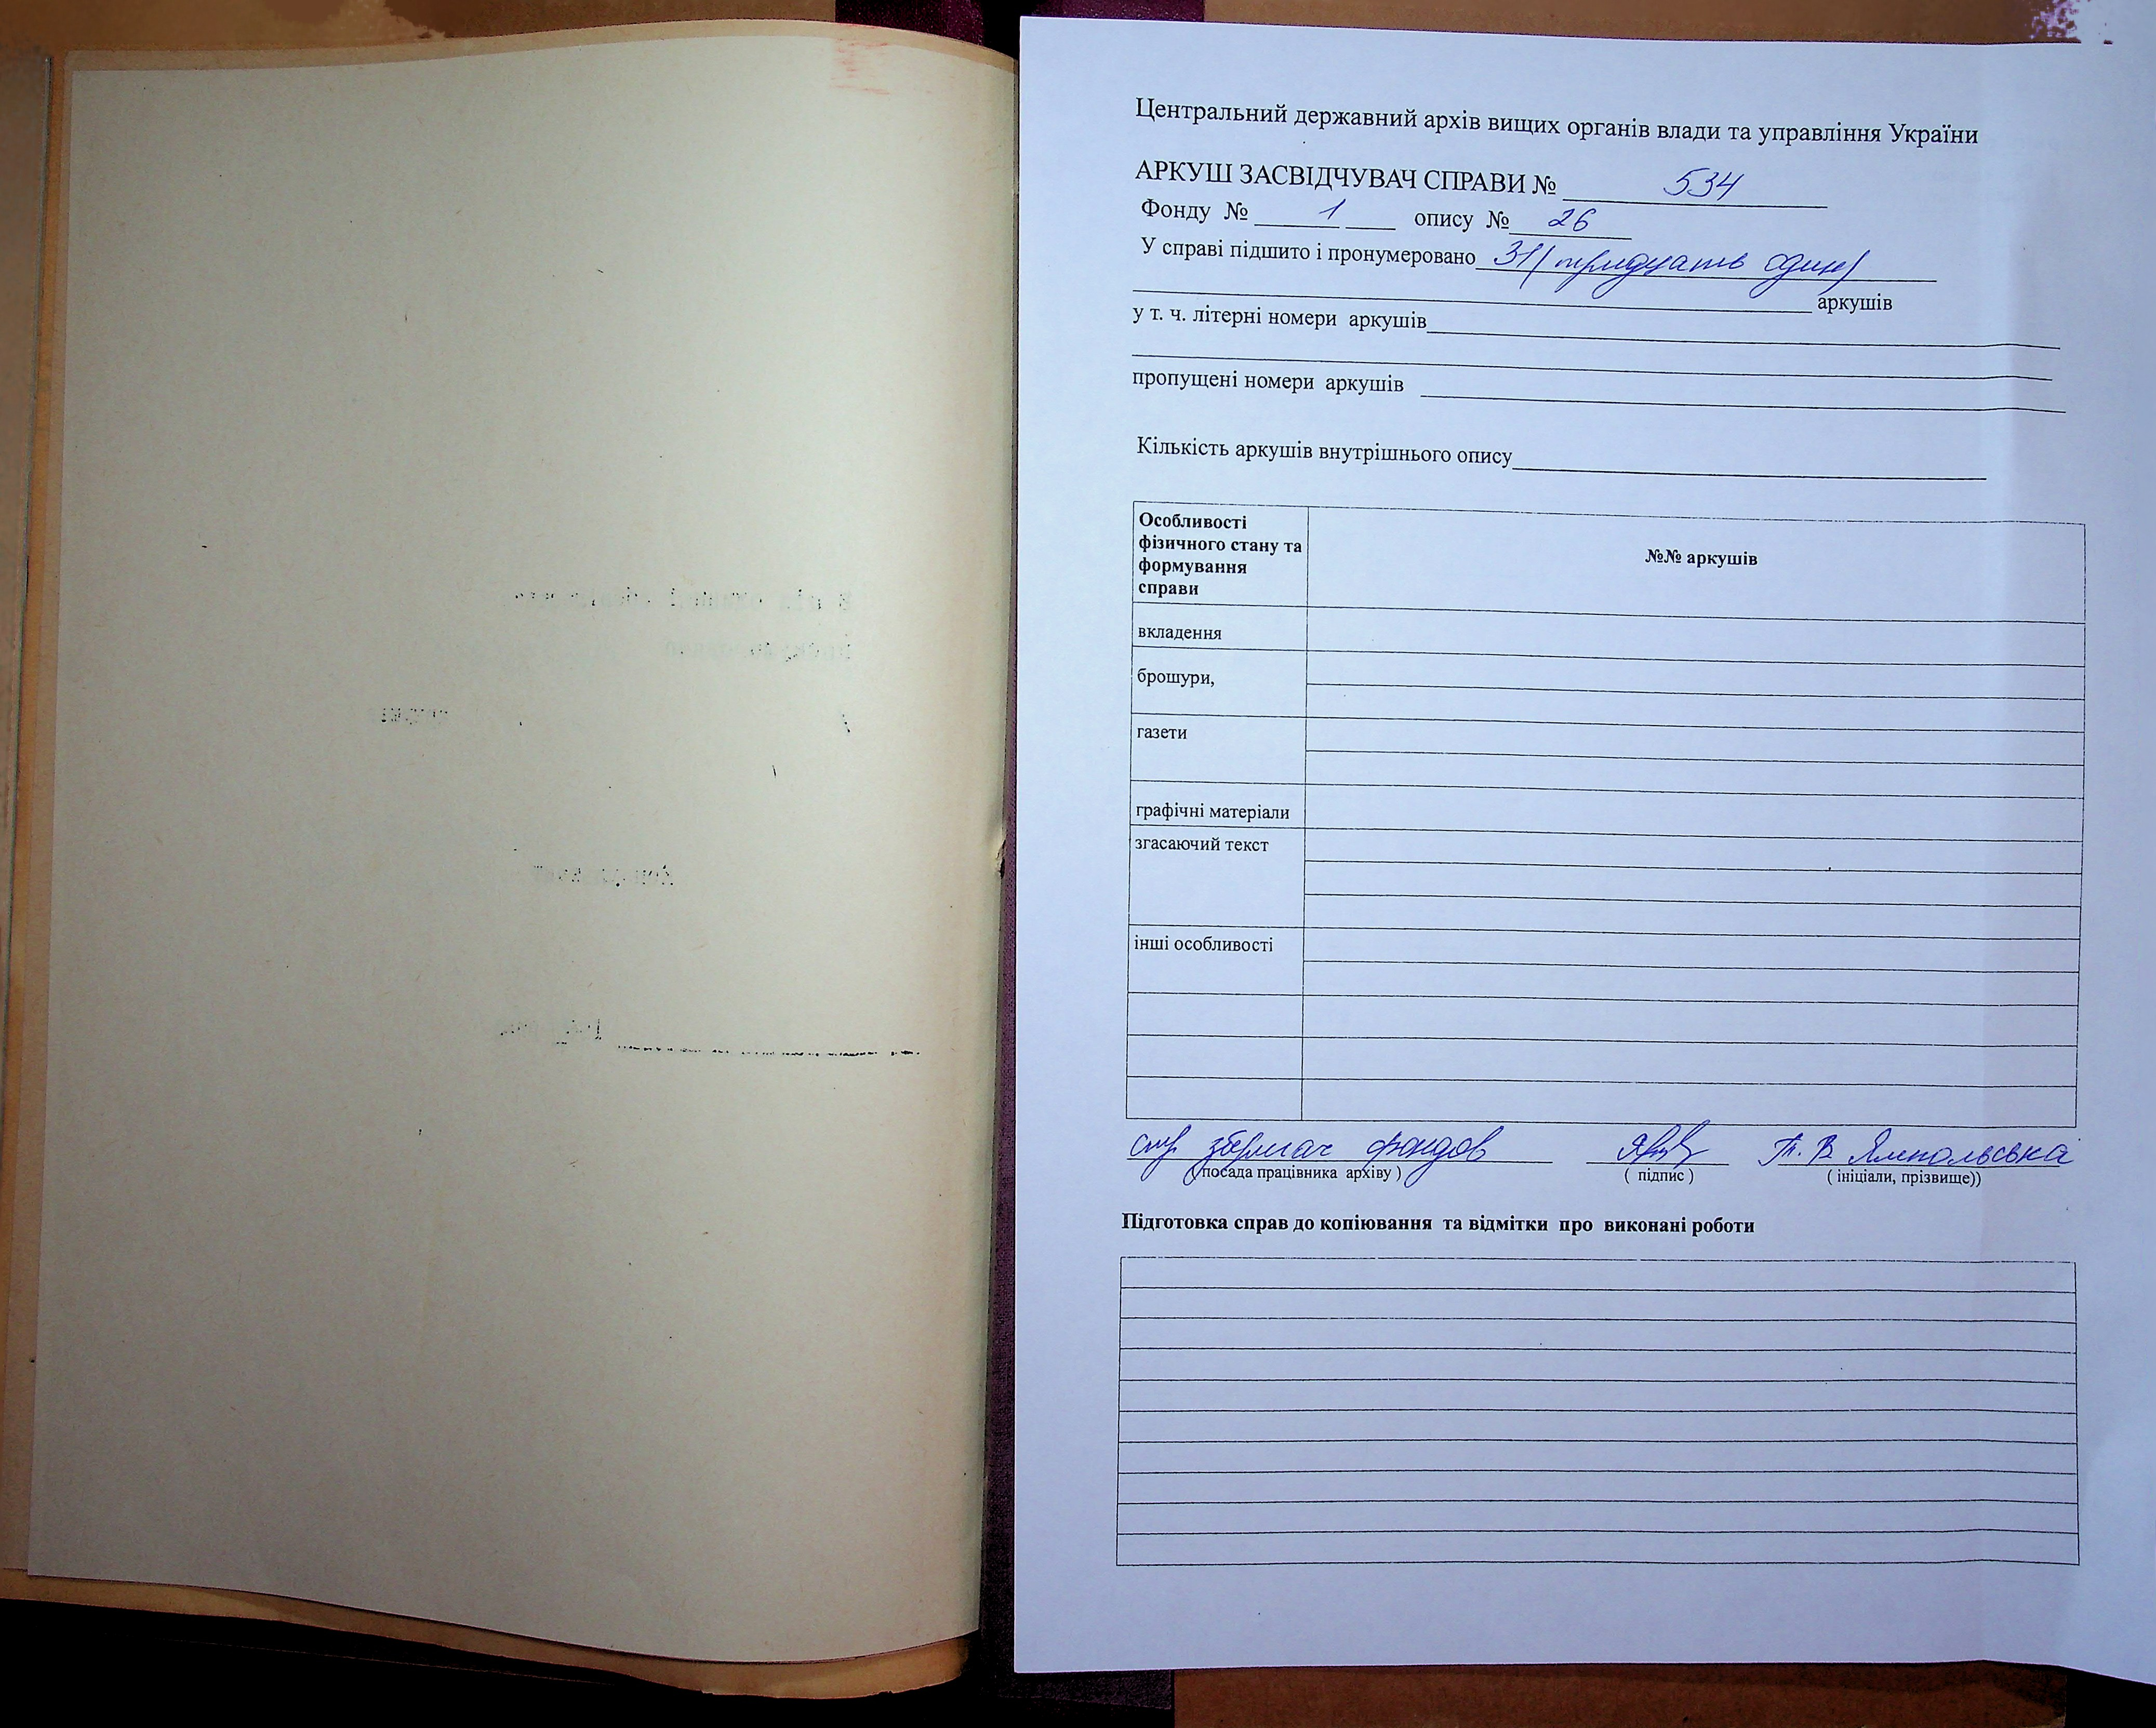 Центральний державний архів вищих органів влади та управління України
АРКУШ ЗАСВІДЧУВАЧ СПРАВИ № 534
Фонду № 1 опису № 26
У справі підшито і пронумеровано 31 (тридцать один)
аркушів
у т. ч. літерні номери аркушів
пропущені номери аркушів
Кількість аркушів внутрішнього опису
Особливості
фізичного стану та
формування
справи
№№ аркушів
вкладення
брошури,
газети
графічні матеріали
згасаючий текст
інші особливості
зберігач фондов
Т. В. Ямпольська
(посада працівника архіву)
( підпис )
( ініціали, прізвище))
Підготовка справ до копіювання та відмітки про виконані роботи